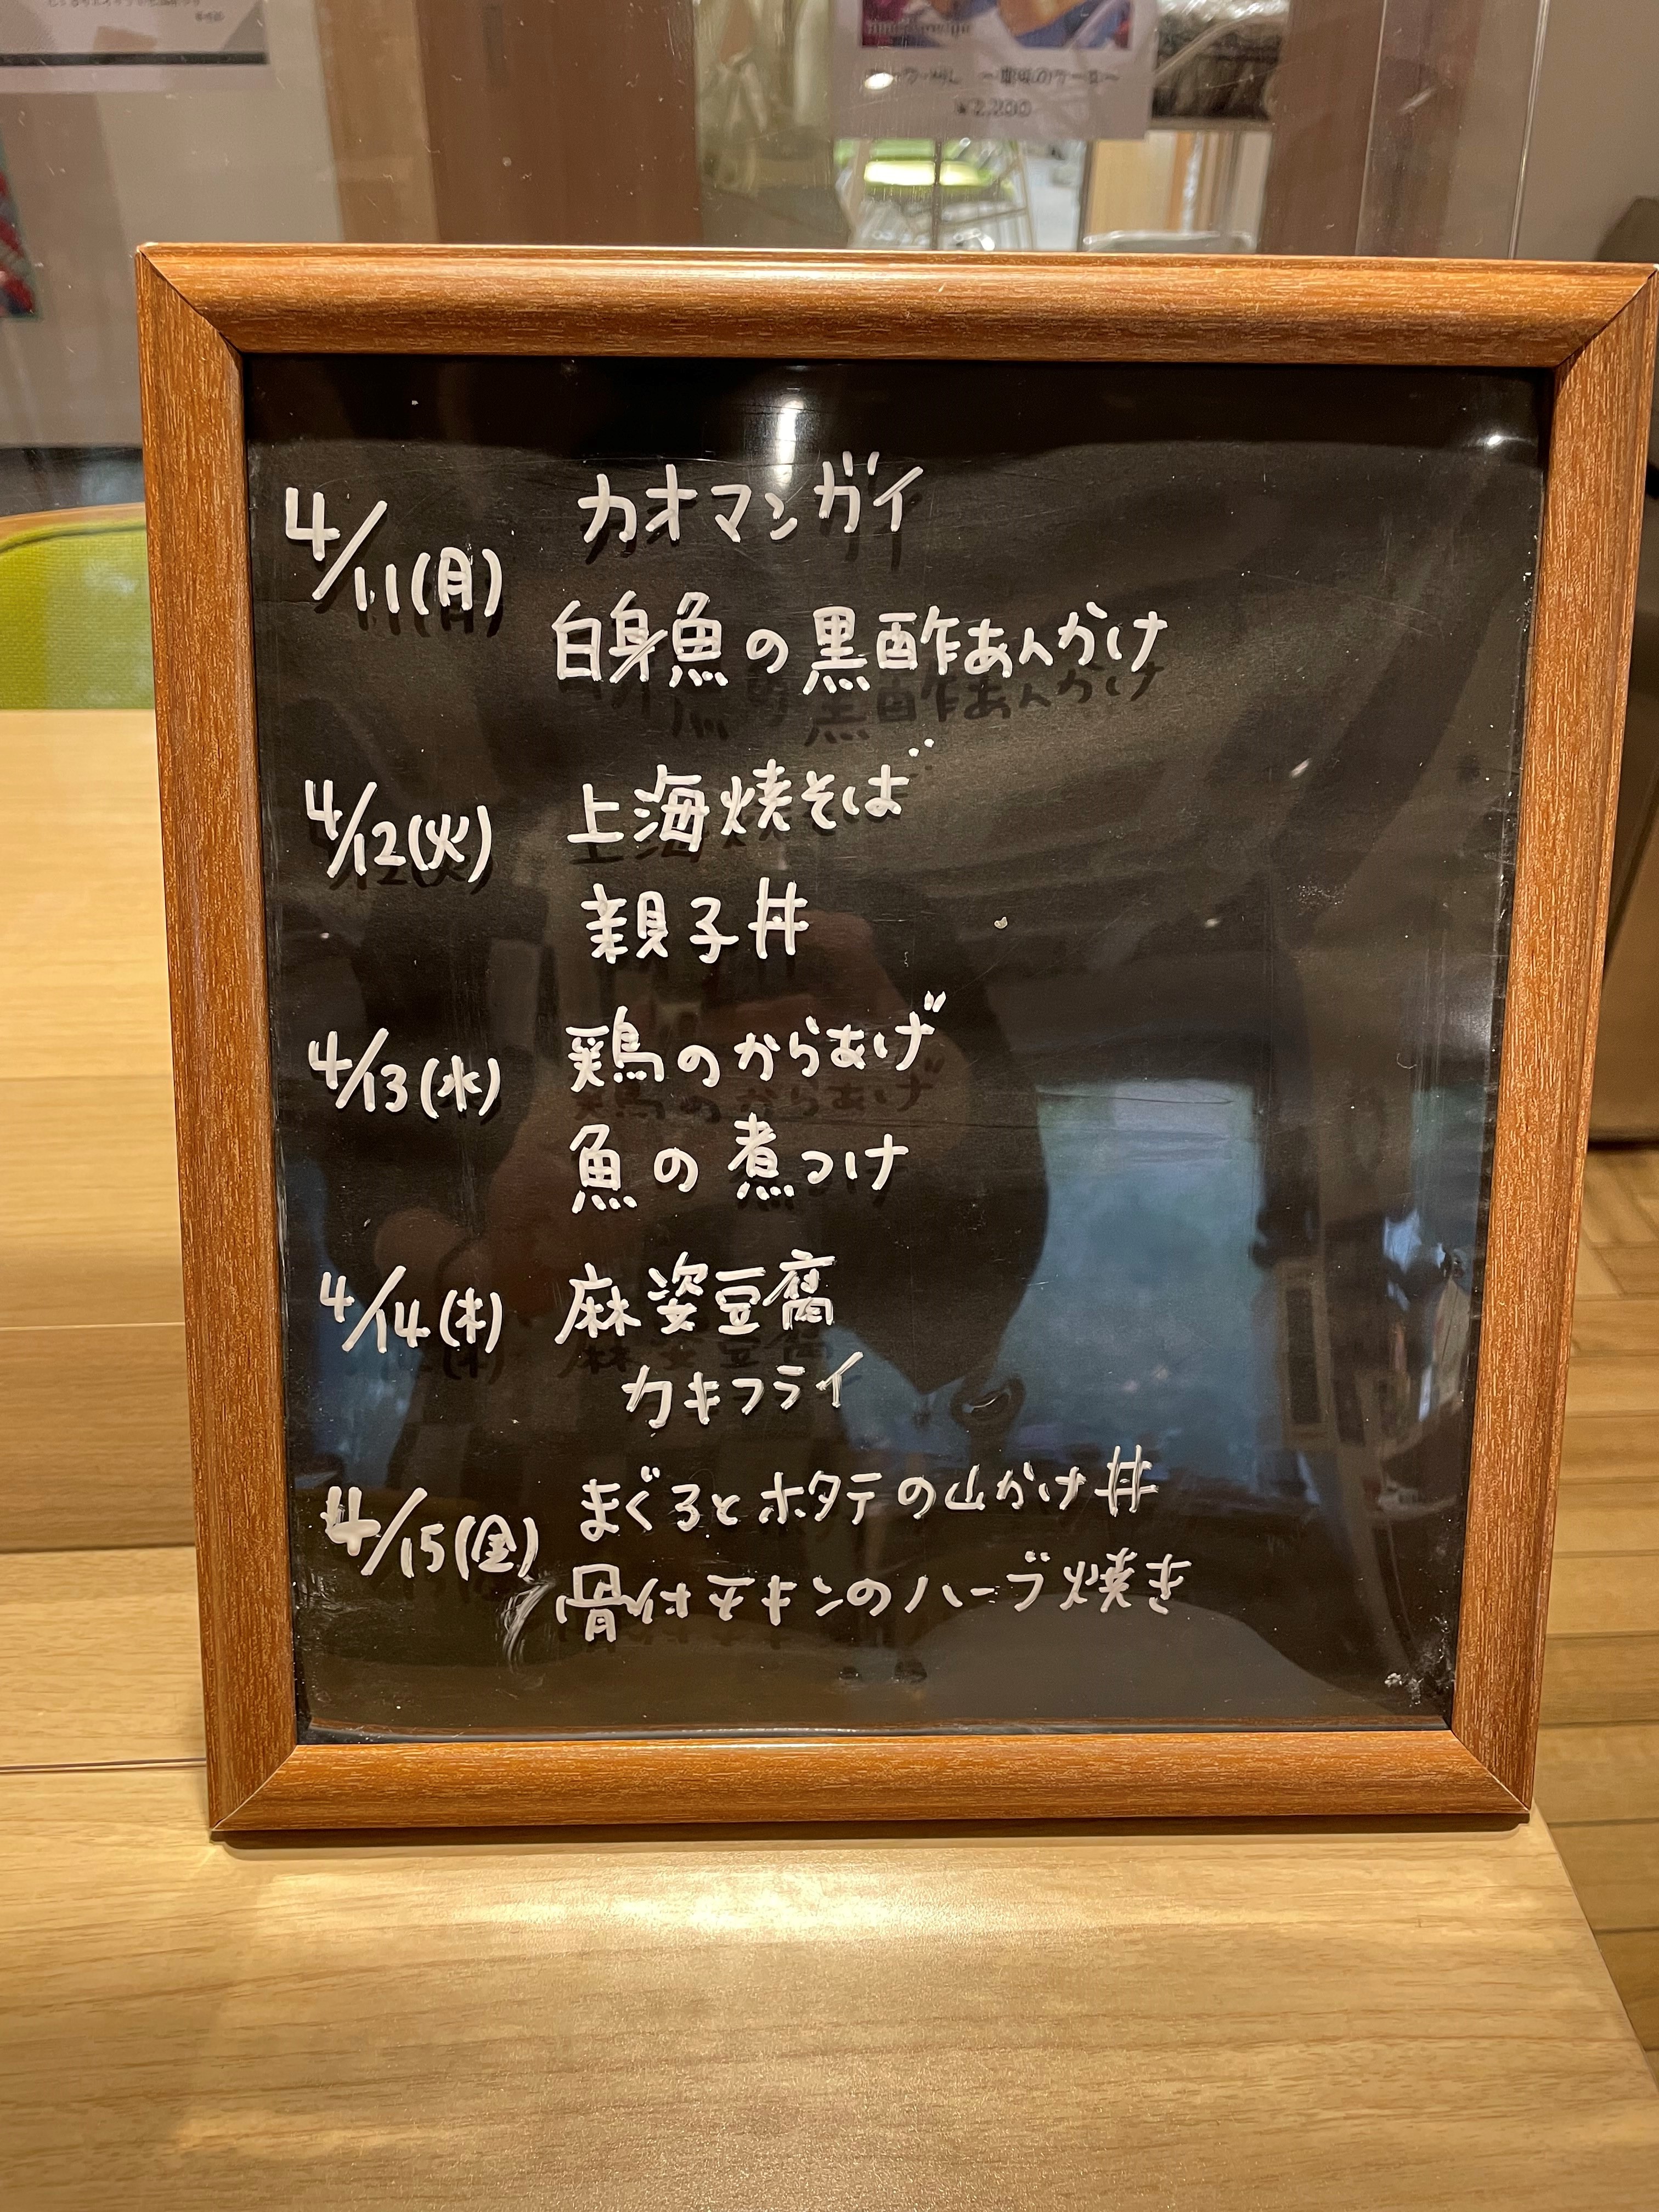 ¥2,200
4/11(月) カオマンガイ
白身魚の黒酢あんかけ
4/12(火) 上海焼そば
親子丼
4/13(水) 鶏のからあげ
魚の煮つけ
4/14(木) 麻婆豆腐
カキフライ
4/15(金) まぐろとホタテの山かけ丼
骨付チキンのハーブ焼き